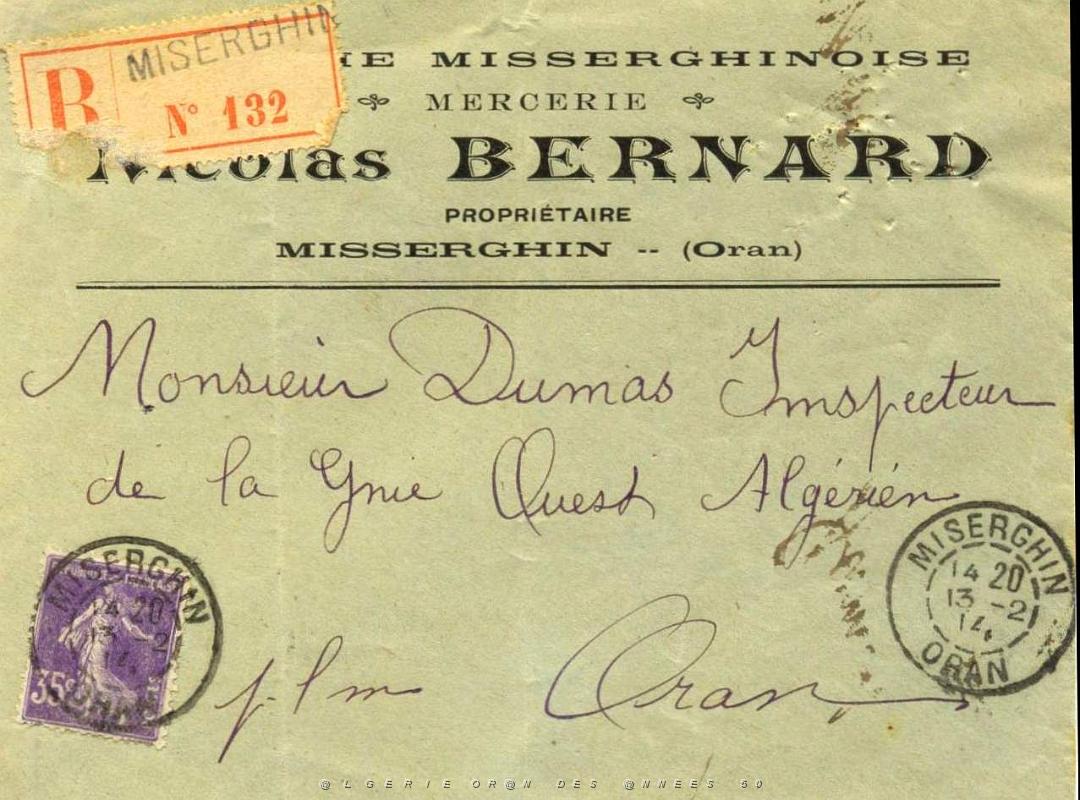 MISERGHIN
R
N° 132
HE MISSERGHINOISE
MERCERIE
Nicolas BERNARD
PROPRIÉTAIRE
MISSERGHIN -- (Oran)
Monsieur Dumas Inspecteur
de la Gnie Ouest Algérien
MISERGHIN
14 20
13 -2
14
ORAN
MISERGHIN
14 20
13 -2
14
ORAN
35c
Oran
@LGERIE OR@N DES @NNEES 50